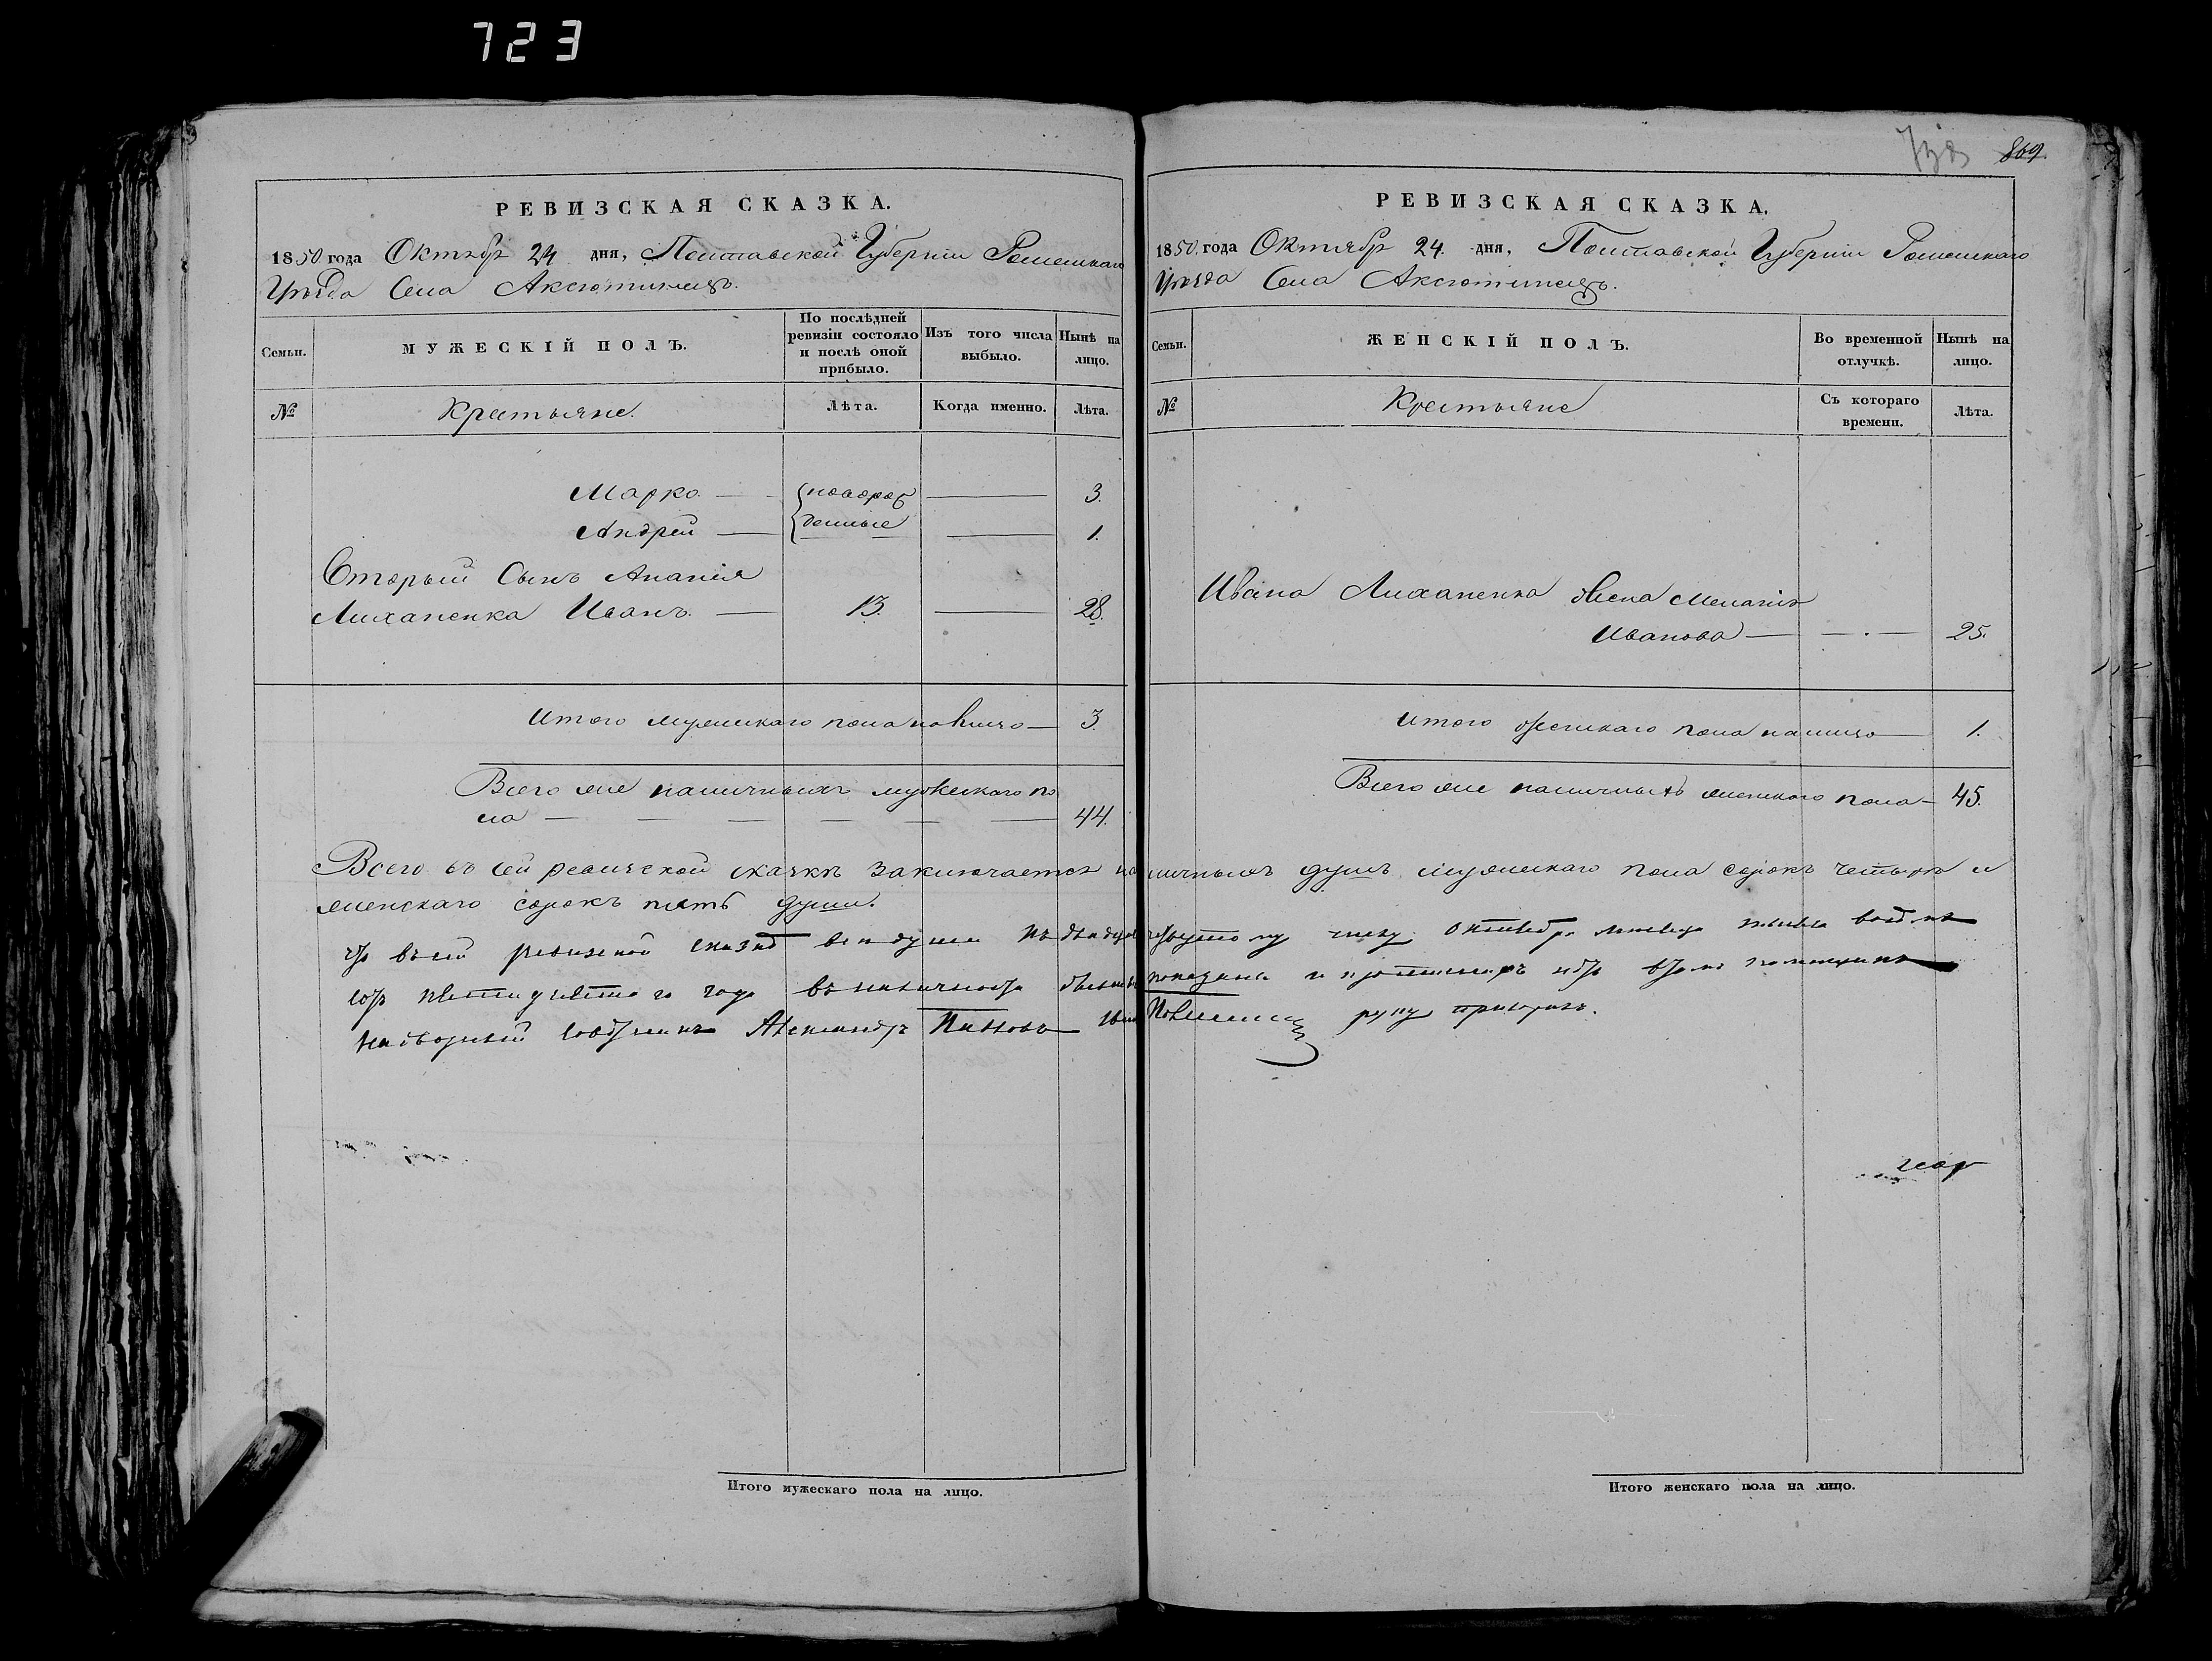 723
869.
РЕВИЗСКАЯ СКАЗКА.
1850 года Октябр 24 дня, Полтавской Губерніи Роменскаго
Уѣзда Села Аксютинецъ.
Семьи. МУЖЕСКІЙ ПОЛЪ. По послѣдней ревизіи состояло и послѣ оной прибыло. Изъ того числа выбыло. Нынѣ на лицо.
№ Крестьяне. Лѣта. Когда именно. Лѣта.
Марко — {новорож — 3.
Андрей — {денные — 1.
Вторый Сынъ Ананія
Лихапенка Иванъ. — 13. — 28.
Итого мужескаго пола налицо — 3.
Всего же наличныхъ мужескаго по
ла — — — — — — 44.
РЕВИЗСКАЯ СКАЗКА.
1850. года Октябр 24. дня, Полтавской Губерніи Роменскаго
Уѣзда Села Аксютинецъ.
Семьи. ЖЕНСКІЙ ПОЛЪ. Во временной отлучкѣ. Нынѣ на лицо.
№ Крестьяне Съ котораго времени. Лѣта.
Ивана Лихапенка жена Меланія
Иванова — — . — 25.
Итого женскаго пола налицо — 1.
Всего же наличныхъ женскаго пола — 45.
Всего въ сей ревизской сказкѣ заключается наличныхъ душъ мужескаго пола сорокъ четыре и
женскаго сорокъ пять душъ.
въ сей ревизской сказкѣ всѣ души къ двадцать числу октября мѣсяца тысяча
сотъ пятидесятаго года въ наличности показаны и
надворный совѣтникъ Александръ Павловъ сынъ руку приложилъ.
Итого мужескаго пола на лицо.
Итого женскаго пола на лицо.